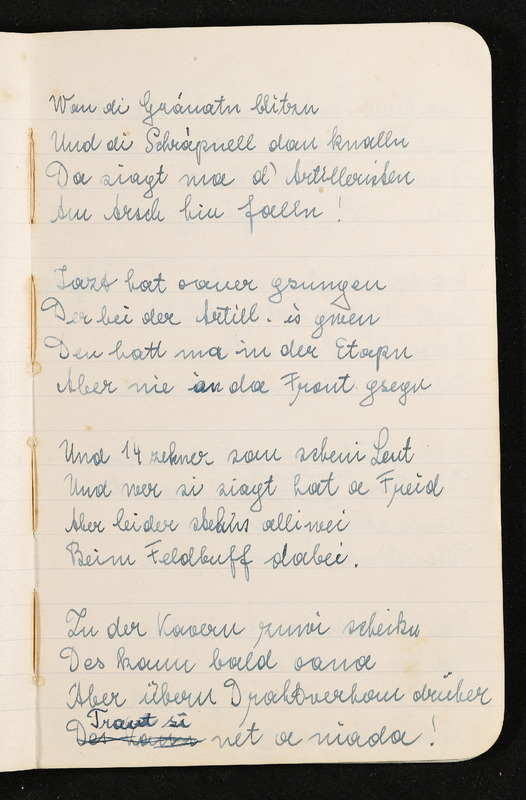 Wan di Gránatn blitzn
Und di Schrápnell dan knalln
Da siagt ma d' Artilleristen
Am Arsch hin falln!
Jazt hat oaner gsungen
Der bei der Artill. is gwen
Den hatt ma in der Etapn
Aber nie an da Front gsegn
Und 14 zehner san scheni Leut
Und wer si siagt hat a Freid
Aber leider stehns alliwei
Beim Feldbuff dabei.
In der Kavern zuwi scheikn
Des kann bald oana
Aber übern Drahtverhau drüber
Traut si
Des kann net a niada!